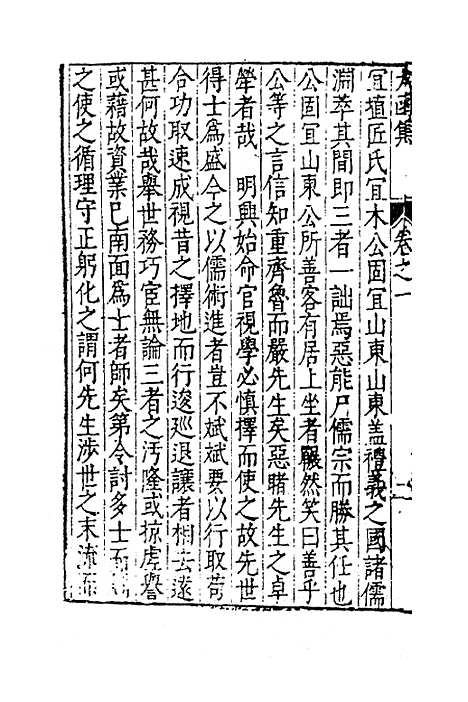 集 卷之一
宜埴匠氏宜木公固宜山東山東蓋禮義之國諸儒
淵萃其間即三者一詘焉惡能尸儒宗而勝其任也
公固宜山東公所善客有居上坐者囅然笑曰善乎
公等之言信知重齊魯而嚴先生矣惡睹先生之卓
犖者哉 明興始命官視學必慎擇而使之故先世
得士爲盛今之以儒術進者豈不斌斌要以行取苟
合功取速成視昔之擇地而行逡巡退讓者相去遠
甚何故哉舉世務巧宦無論三者之汚隆或掠虛譽
或藉故資業已南面爲士者師矣第令討多士而
之使之循理守正躬化之謂何先生涉世之末流而